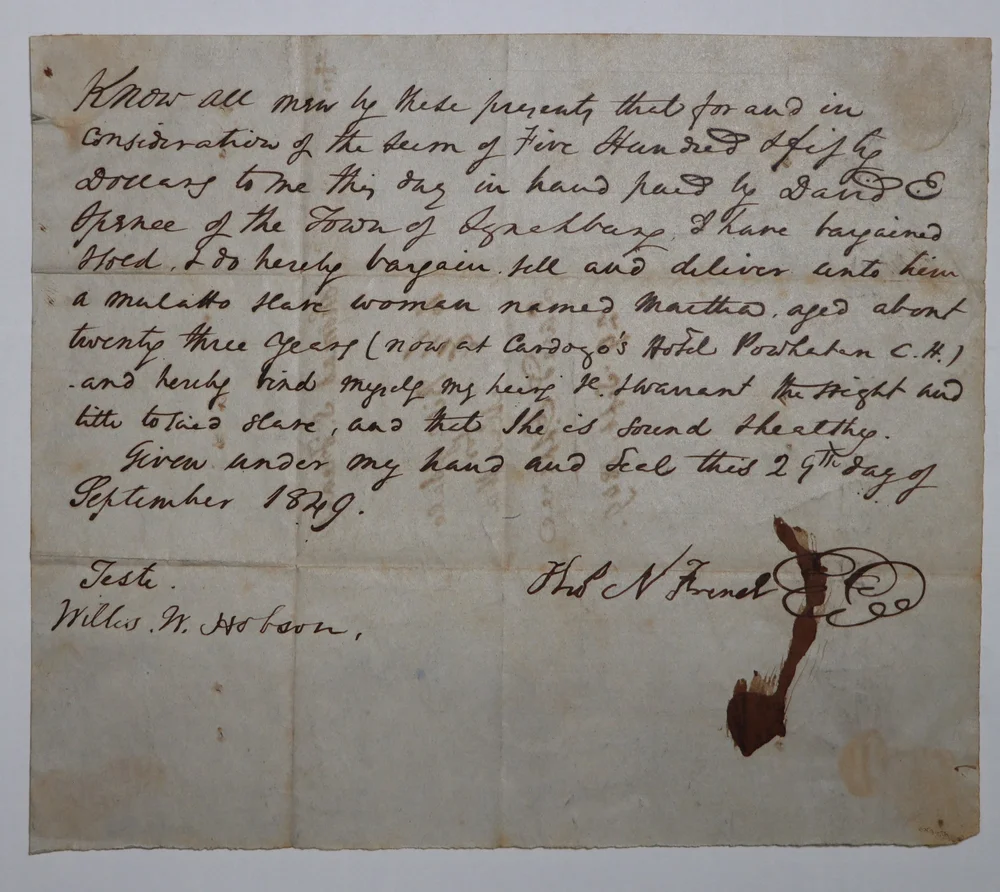 Know all men by these presents that for and in
consideration of the sum of Five Hundred & fifty
Dollars to me this day in hand paid by David E
Spence of the Town of Lynchburg, I have bargained
& sold, & do hereby bargain, sell and deliver unto him
a mulatto slave woman named Martha, aged about
twenty three years (now at Cardozo's Hotel Powhatan C.H.)
and hereby bind myself my heirs &c. to warrant the right and
title to said slave, and that she is sound & healthy.
Given under my hand and seal this 29th day of
September 1849.
Teste.
Willis. W. Hobson,
Thos N French